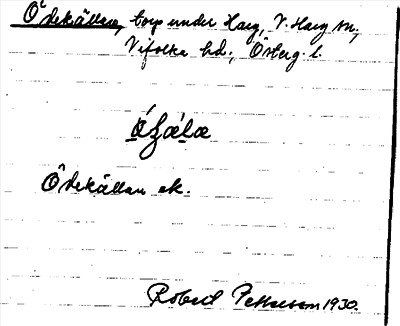 Ödekällan, torp under Harg, V. Harg sn,
Vifolka hd., Österg. l.
Ödekällan ek.
Robert Pettersson 1930.